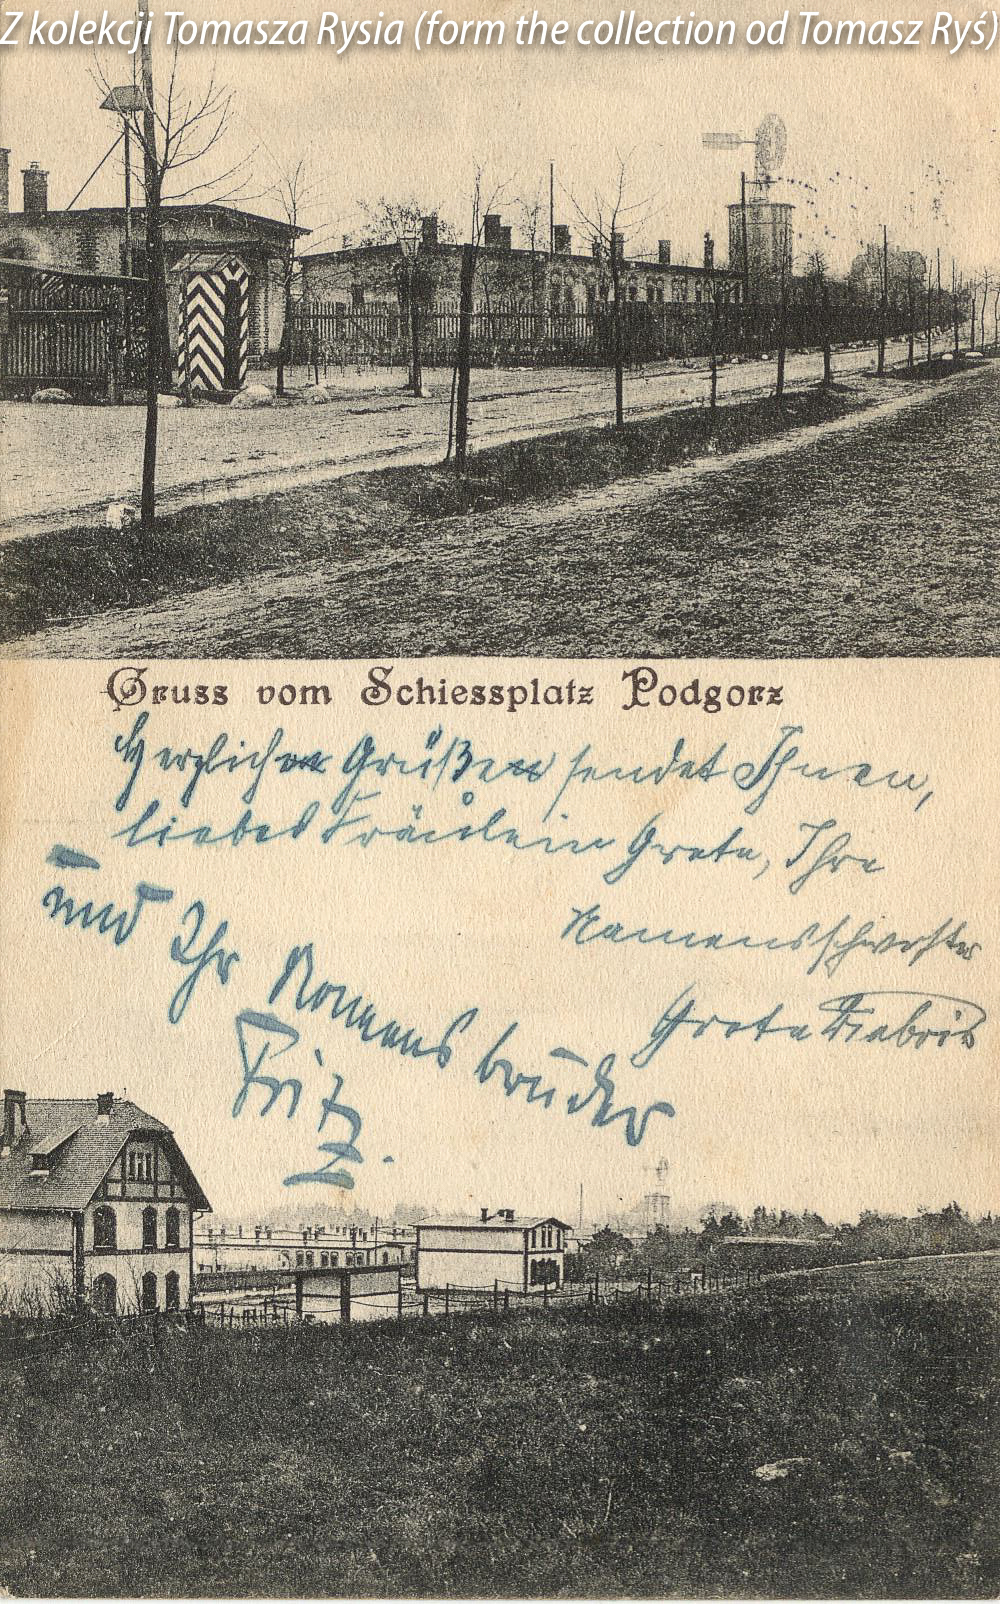 Z kolekcji Tomasza Rysia (form the collection od Tomasz Ryś)
Gruss vom Schiessplatz Podgorz
Herzlichen Grüßen sendet Ihnen,
liebes Fräulein Grete, Ihre
Namensschwester
Grete
und Ihr Namensbruder
Fritz